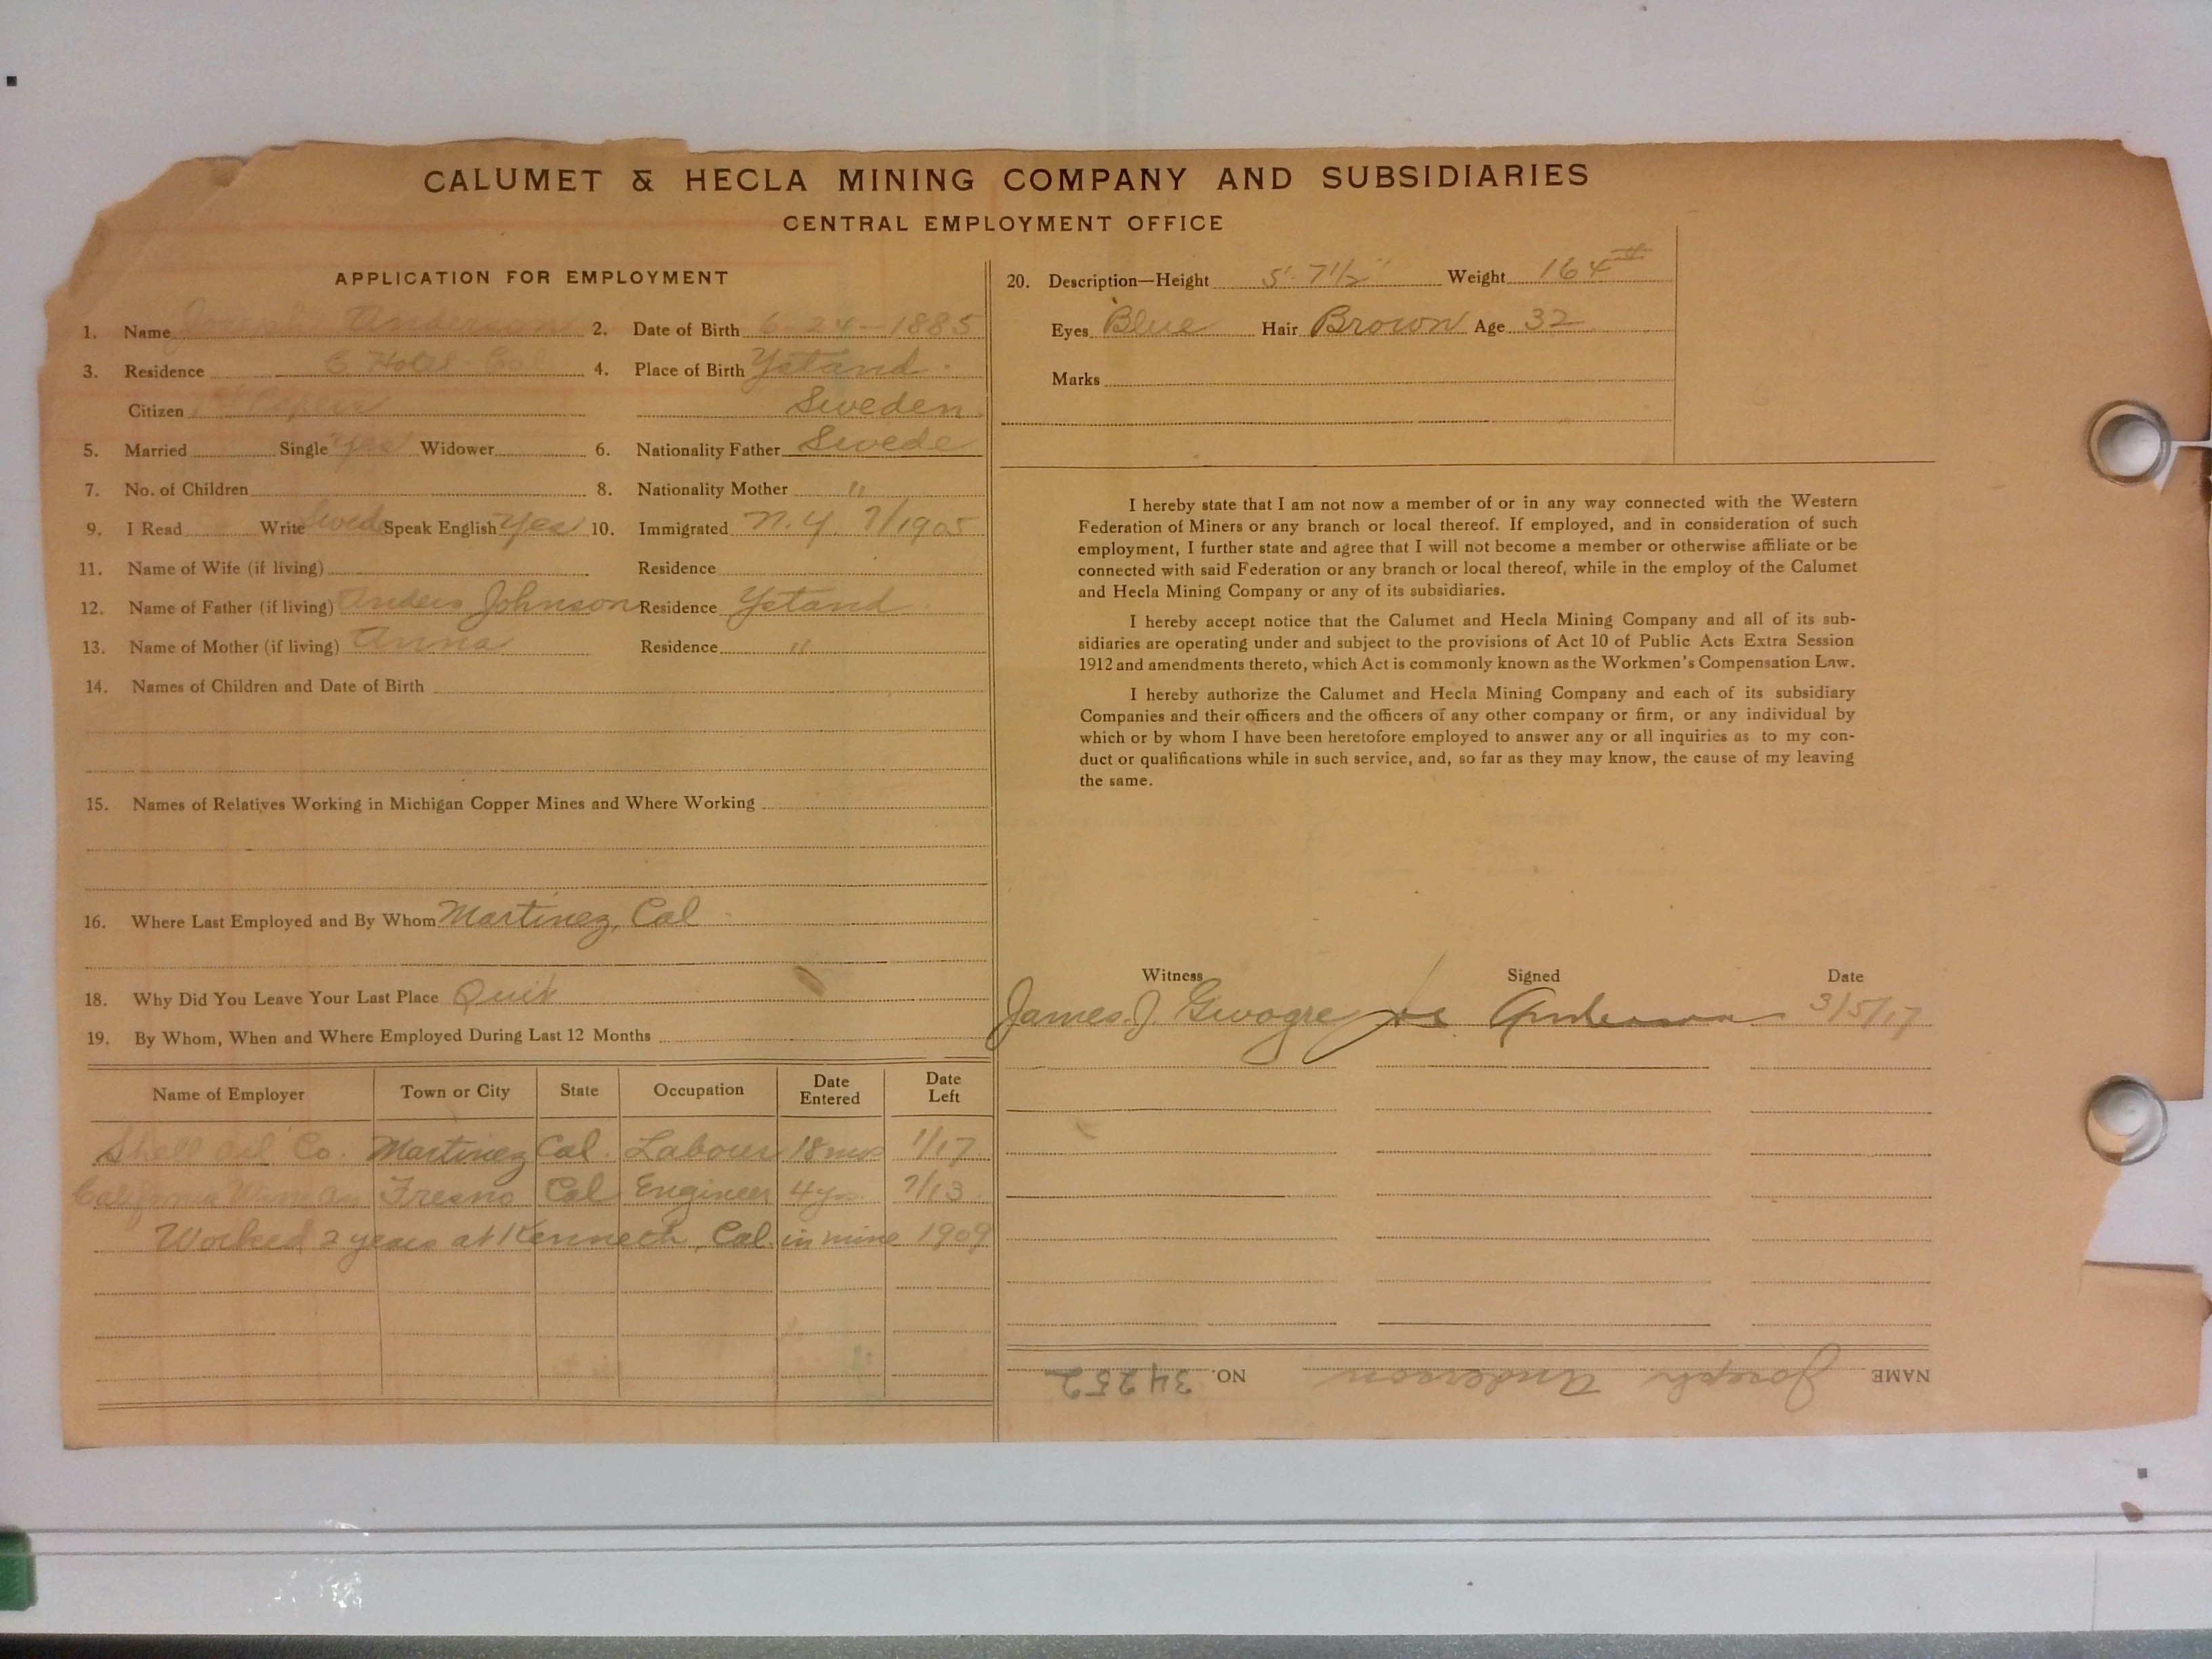 CALUMET & HECLA MINING COMPANY AND SUBSIDIARIES
CENTRAL EMPLOYMENT OFFICE
APPLICATION FOR EMPLOYMENT
1. Name Joseph Anderson 2. Date of Birth 6-24-1885
3. Residence C Hotel Cal 4. Place of Birth Ystand
Citizen 1st Paper Sweden
5. Married Single Yes Widower 6. Nationality Father Swede
7. No. of Children 8. Nationality Mother "
9. I Read Write Swed Speak English Yes 10. Immigrated N.Y. 7/1905
11. Name of Wife (if living) Residence
12. Name of Father (if living) Anders Johnson Residence Ystand
13. Name of Mother (if living) Anna Residence "
14. Names of Children and Date of Birth
15. Names of Relatives Working in Michigan Copper Mines and Where Working
16. Where Last Employed and By Whom Martinez, Cal
18. Why Did You Leave Your Last Place Quit
19. By Whom, When and Where Employed During Last 12 Months
Name of Employer Town or City State Occupation Date Entered Date Left
Shell Oil Co. Martinez Cal. Labour 18 mos 1/17
California Fresno Cal Engineer 4 yrs. 7/13
Worked 2 years at Kenneth, Cal. in mine 1909
20. Description—Height 5' 7 1/2" Weight 164#
Eyes Blue Hair Brown Age 32
Marks
I hereby state that I am not now a member of or in any way connected with the Western
Federation of Miners or any branch or local thereof. If employed, and in consideration of such
employment, I further state and agree that I will not become a member or otherwise affiliate or be
connected with said Federation or any branch or local thereof, while in the employ of the Calumet
and Hecla Mining Company or any of its subsidiaries.
I hereby accept notice that the Calumet and Hecla Mining Company and all of its sub-
sidiaries are operating under and subject to the provisions of Act 10 of Public Acts Extra Session
1912 and amendments thereto, which Act is commonly known as the Workmen's Compensation Law.
I hereby authorize the Calumet and Hecla Mining Company and each of its subsidiary
Companies and their officers and the officers of any other company or firm, or any individual by
which or by whom I have been heretofore employed to answer any or all inquiries as to my con-
duct or qualifications while in such service, and, so far as they may know, the cause of my leaving
the same.
Witness Signed Date
James J. Gwogre Jos Anderson 3/5/17
NAME Joseph Anderson NO. 34252